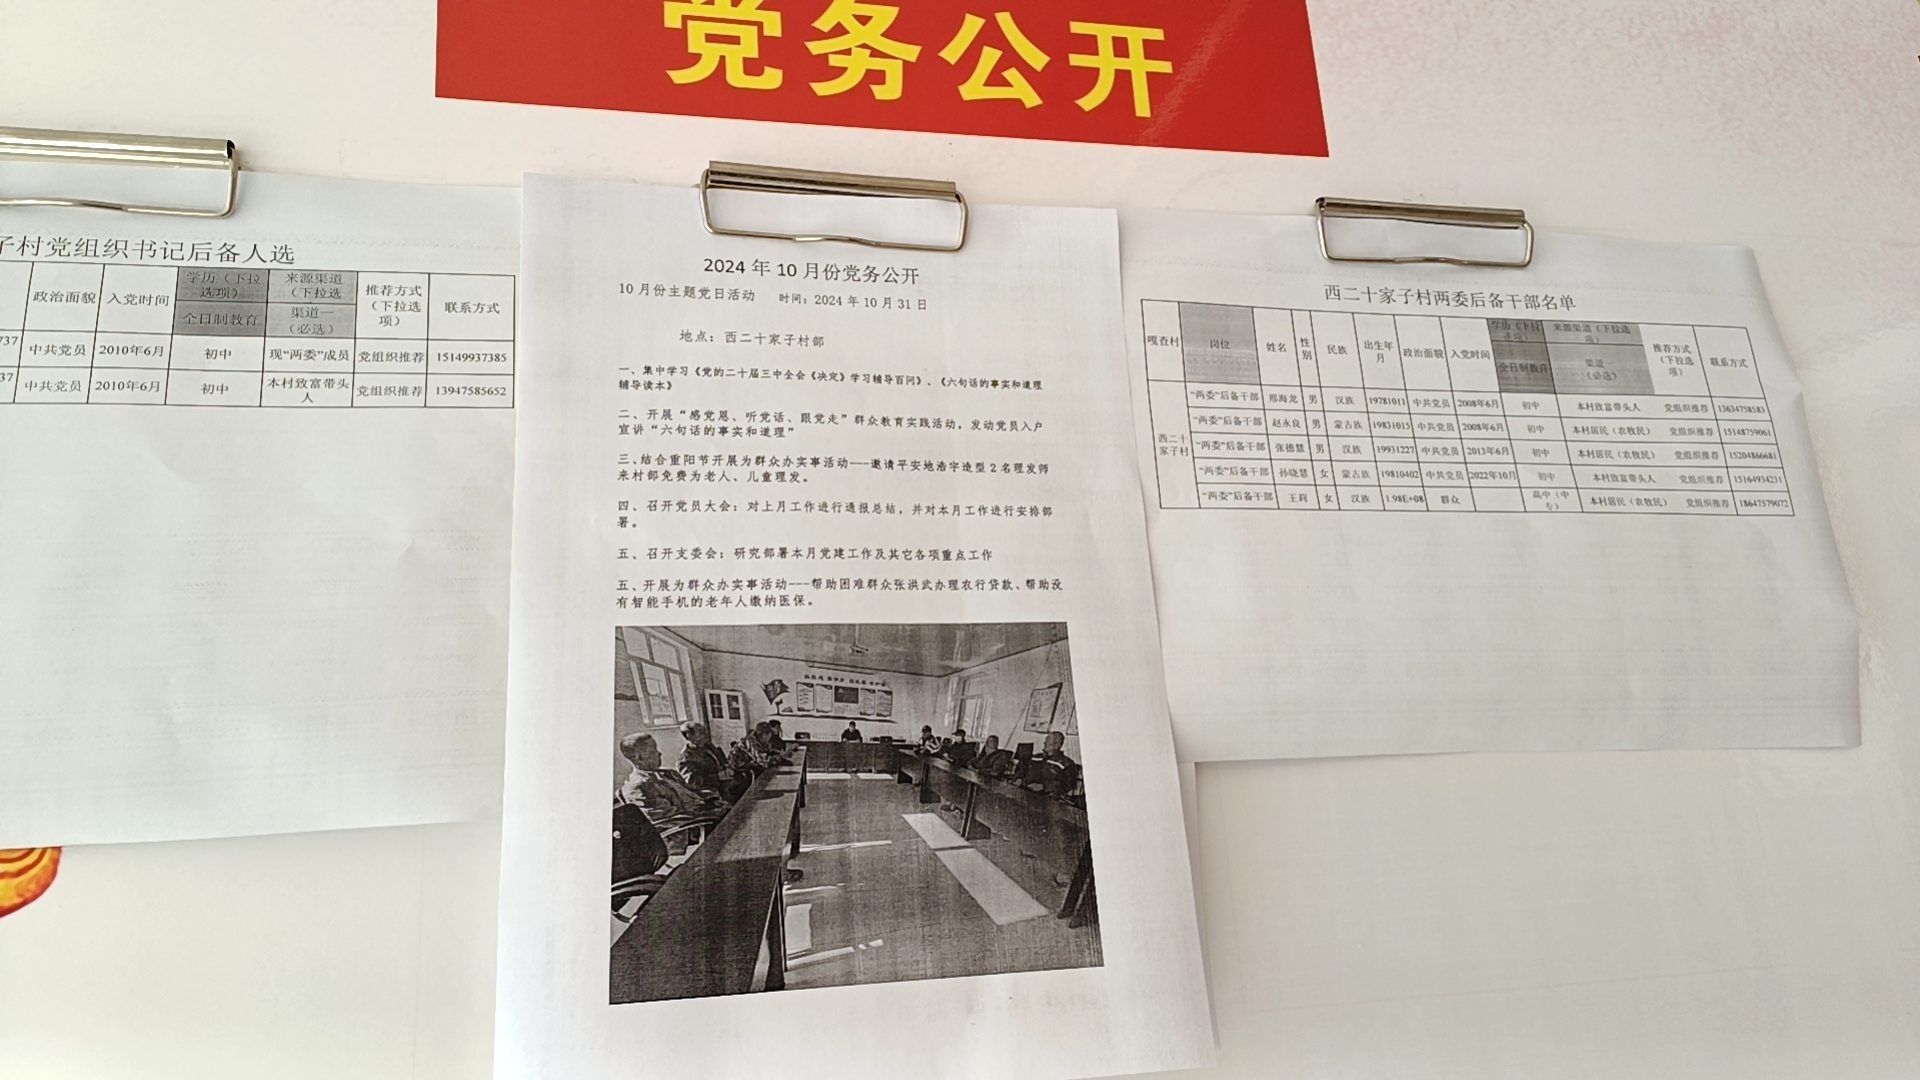 党务公开
子村党组织书记后备人选
政治面貌 入党时间 学历（下拉选项） 来源渠道（下拉选 推荐方式（下拉选项） 联系方式
全日制教育 渠道一（必选）
737 中共党员 2010年6月 初中 现“两委”成员 党组织推荐 15149937385
37 中共党员 2010年6月 初中 本村致富带头人 党组织推荐 13947585652
2024 年 10 月份党务公开
10 月份主题党日活动 时间：2024 年 10 月 31 日
地点：西二十家子村部
一、集中学习《党的二十届三中全会《决定》学习辅导百问》、《六句话的事实和道理
辅导读本》
二、开展“感党恩、听党话、跟党走”群众教育实践活动，发动党员入户
宣讲“六句话的事实和道理”
三、结合重阳节开展为群众办实事活动---邀请平安地浩宇造型 2 名理发师
来村部免费为老人、儿童理发。
四、召开党员大会：对上月工作进行通报总结，并对本月工作进行安排部
署。
五、召开支委会：研究部署本月党建工作及其它各项重点工作
五、开展为群众办实事活动---帮助困难群众张洪武办理农行贷款、帮助没
有智能手机的老年人缴纳医保。
西二十家子村两委后备干部名单
嘎查村 岗位 姓名 性别 民族 出生年月 政治面貌 入党时间 学历（下拉选项） 来源渠道（下拉选项） 推荐方式（下拉选项） 联系方式
全日制教育 渠道一（必选）
西二十家子村
“两委”后备干部 邢海龙 男 汉族 19781011 中共党员 2008年6月 初中 本村致富带头人 党组织推荐 13634758583
“两委”后备干部 赵永良 男 蒙古族 19831015 中共党员 2008年6月 初中 本村居民（农牧民） 党组织推荐 15148759061
“两委”后备干部 张德慧 男 汉族 19931227 中共党员 2013年6月 初中 本村居民（农牧民） 党组织推荐 15204866681
“两委”后备干部 孙晓慧 女 蒙古族 19810402 中共党员 2022年10月 初中 本村致富带头人 党组织推荐 15164934231
“两委”后备干部 王莉 女 汉族 1.98E+08 群众 高中（中专） 本村居民（农牧民） 党组织推荐 18647579072